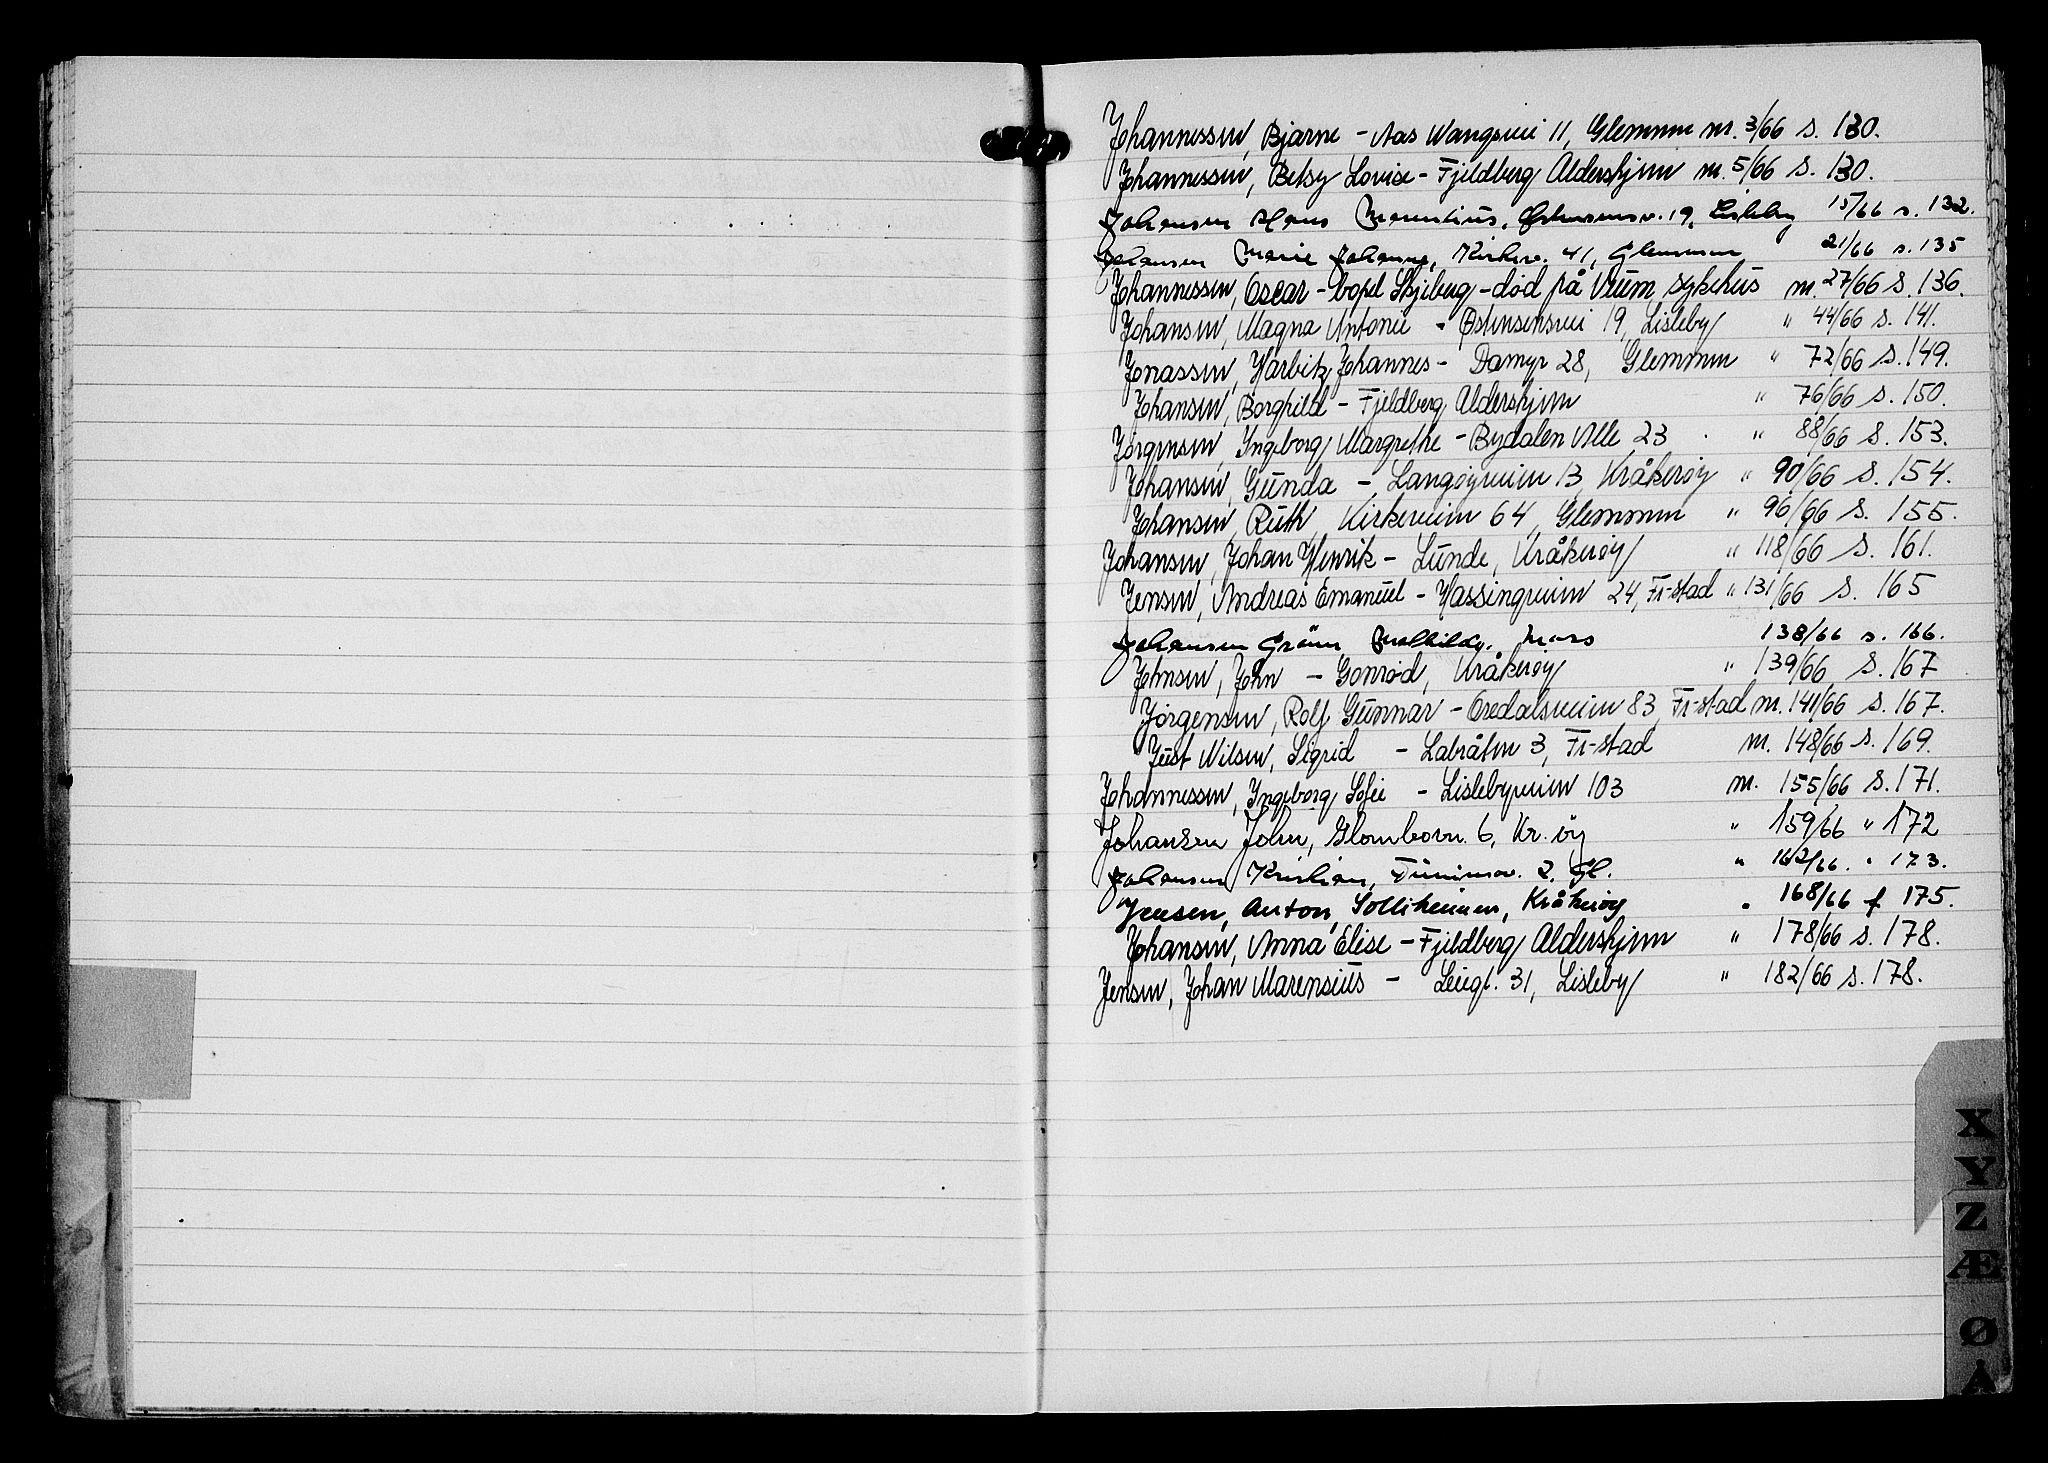 Johannessen, Bjarne - Aas Wangsvei 11, Glemmen nr. 3/66 s. 130.
Johannessen, Betsy Lovise - Fjeldberg Aldershjem nr. 5/66 s. 130.
Johansen Hans Marentius, Østensensv. 19, Lisleby 15/66 s. 132.
Johansen Marie Johanne, Kirkev. 41, Glemmen 21/66 s. 135
Johannessen, Oscar - bopel Skjeberg - død på Veum sykehus nr. 27/66 s. 136.
Johansen, Magna Antonie - Østensensvei 19, Lisleby " 44/66 s. 141.
Jonassen, Harbitz Johannes - Damyr 28, Glemmen " 72/66 s. 149.
Johansen, Borghild - Fjeldberg Aldershjem " 76/66 s. 150.
Jørgensen, Ingeborg Margrethe - Bydalen Alle 23 " 88/66 s. 153.
Johansen, Gunda - Langøyveien 13, Kråkerøy " 90/66 s. 154.
Johansen, Ruth, Kirkeveien 64, Glemmen " 96/66 s. 155.
Johansen, Johan Henrik - Lunde, Kråkerøy " 118/66 s. 161.
Jensen, Andreas Emanuel - Hassingveien 24, Fr-stad " 131/66 s. 165
Johansen Grāun, Mathilde, Moss 138/66 s. 166.
Johnsen, John - Gonrød, Kråkerøy " 139/66 s. 167
Jørgensen, Rolf Gunnar - Oredalsveien 83, Fr-stad nr. 141/66 s. 167.
Just Nilsen, Sigrid - Labråten 3, Fr-stad nr. 148/66 s. 169.
Johannessen, Ingeborg Sofie - Lislebyveien 103 nr. 155/66 s. 171.
Johansen John, Glombovn. 6, Kr.øy " 159/66 " 172
Johansen Kristian, 2. Gl. " 162/66. " 173.
Jensen, Anton, Solliheimen, Kråkerøy " 168/66 f 175.
Johansen, Anna Elise - Fjeldberg Aldershjem " 178/66 s. 178.
Jensen, Johan Marensius - Leiegt. 31, Lisleby " 182/66 s. 178.
X
Y
Z
Æ
Ø
Å